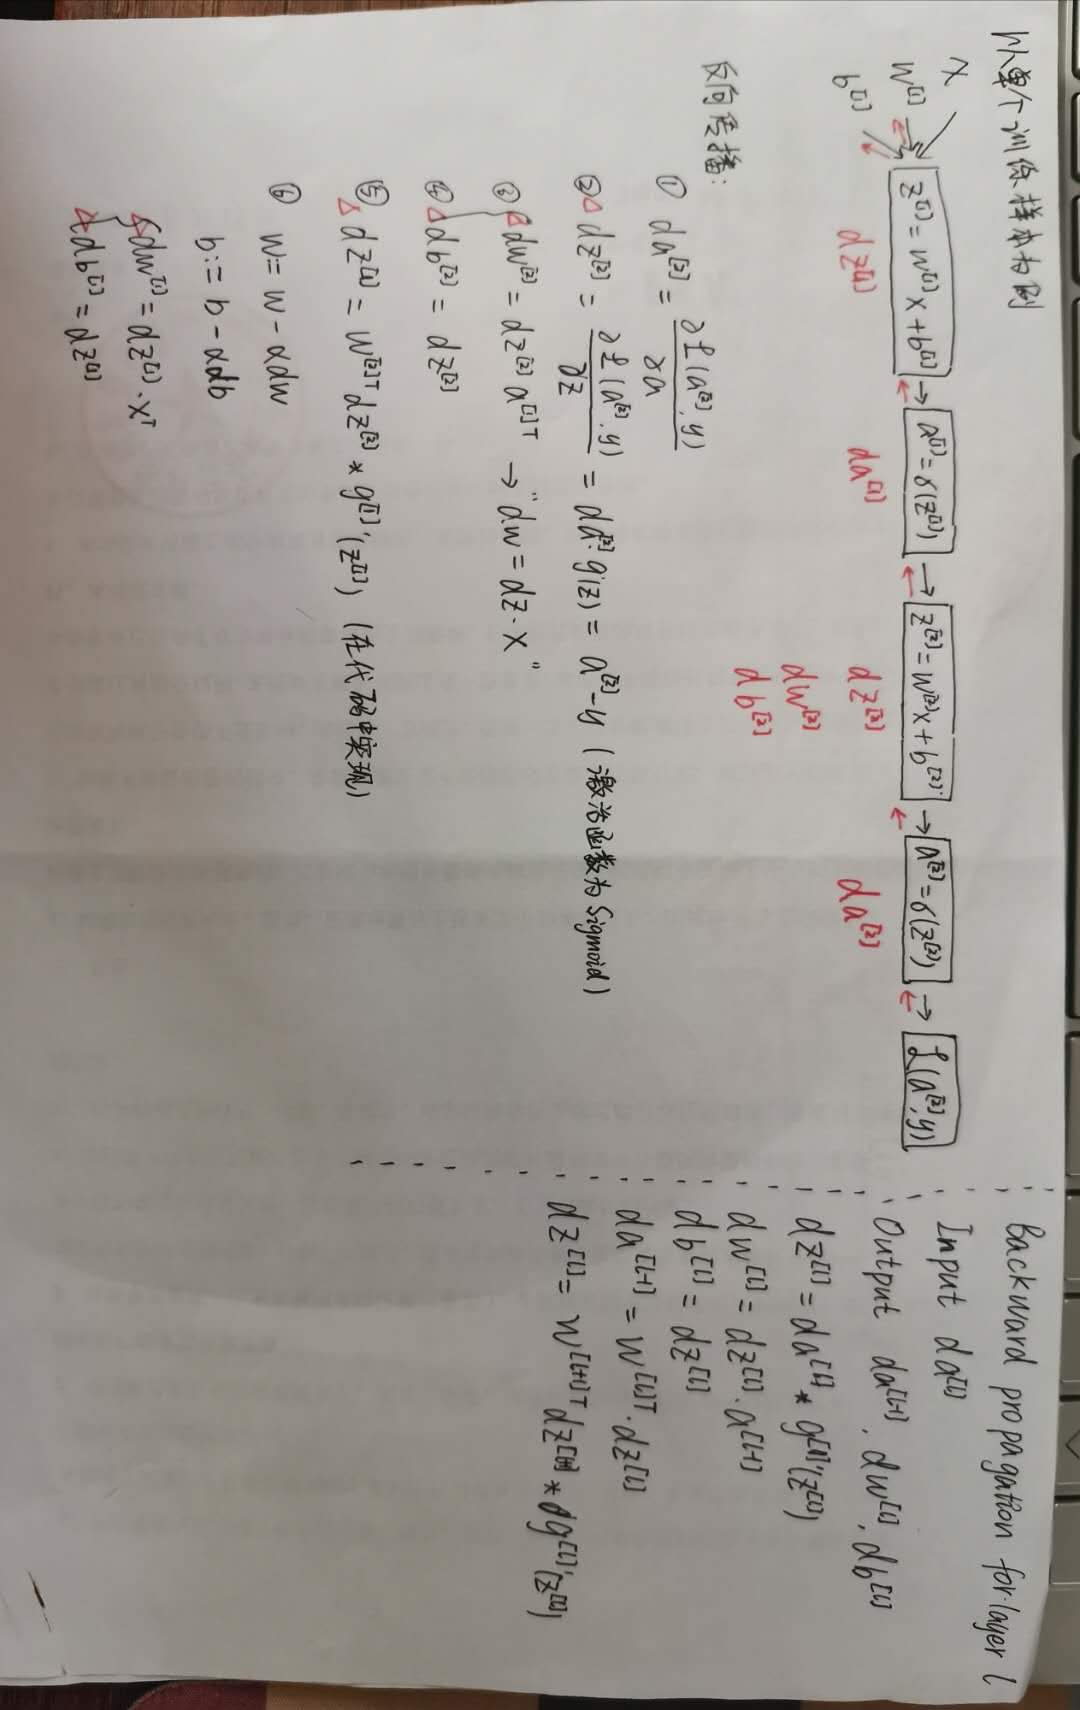 以单个训练样本为例
x
w^[1]
b^[1]
z^[1] = w^[1] x + b^[1] → a^[1] = σ(z^[1]) → z^[2] = w^[2] x + b^[2] → a^[2] = σ(z^[2]) → L(a^[2], y)
dz^[1] da^[1] dz^[2] da^[2]
dw^[2]
db^[2]
反向传播:
① da^[2] = ∂L(a^[2], y) / ∂a
② dz^[2] = ∂L(a^[2], y) / ∂z = da^[2] · g'(z) = a^[2] - y (激活函数为 Sigmoid)
③ dw^[2] = dz^[2] a^[1]T → "dw = dz · x"
④ db^[2] = dz^[2]
⑤ dz^[1] = w^[2]T dz^[2] * g^[1]'(z^[1]) (在代码中实现)
⑥ w = w - αdw
b := b - αdb
dw^[1] = dz^[1] · x^T
db^[1] = dz^[1]
Backward propagation for layer l
Input da^[l]
Output da^[l-1], dw^[l], db^[l]
dz^[l] = da^[l] * g^[l]'(z^[l])
dw^[l] = dz^[l] · a^[l-1]
db^[l] = dz^[l]
da^[l-1] = w^[l]T · dz^[l]
dz^[l] = w^[l+1]T dz^[l+1] * dg^[l]'(z^[l])